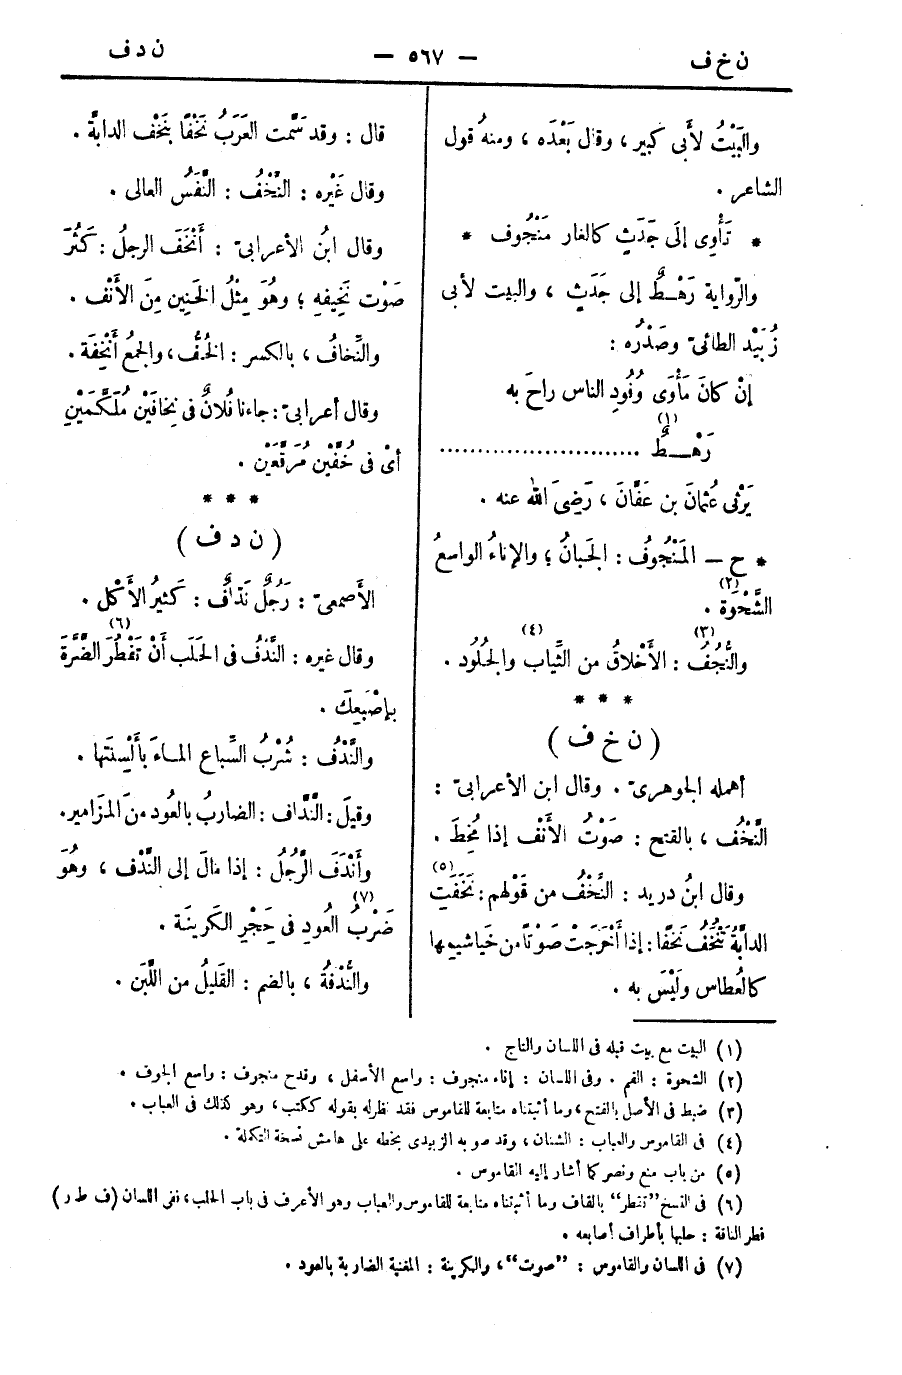 ن خ ف — ٥٦٧ — ن د ف
والبَيْتُ لأَبى كبير ، وقال بَعْدَه ، ومنهُ قول
الشاعر .
* تَأْوِى إلَى جَدَثٍ كالغار مَنْجُوف *
والرّواية رَهْطٌ إلى جَدَثٍ ، والبيت لأبى
زُبَيْد الطائىّ وصَدْرُه :
إنْ كانَ مَأْوَى وُفُودِ الناس راحَ به
رَهْطٌ (١) ..........................
يَرْثى عُثمانَ بن عَفَّانَ ، رَضِىَ الله عنه .
* ح — المَنْجُوفُ : الجَبانُ ؛ والإناءُ الواسعُ
الشَّحْوَة (٢) .
والنُّجُفُ (٣) : الأَخْلاقُ من الثِّياب (٤) والجُلُود .
* * *
( ن خ ف )
أهمله الجوهرىّ . وقال ابن الأعرابىّ :
النَّخْف ، بالفتح : صَوْتُ الأَنْف إذا مُخِطَ .
وقال ابنُ دريد : النَّخْفُ من قَوْلهم : نَخَفَتِ (٥)
الدابَّةُ تَنْخَف نَخْفًا : إذا أَخْرَجَتْ صَوْتًا من خَياشيمها
كالعُطاس ولَيْسَ به .
قال : وقد سَمَّت العَرَبُ نَخْفًا بنَخْف الدابَّة .
وقال غَيْره : النَّخْفُ : النَّفَسُ العالى .
وقال ابنُ الأعرابىّ : أَنْخَفَ الرجلُ : كَثُرَ
صَوْت نَخِيفهِ ؛ وهُوَ مِثْلُ الخَنِين مِنَ الأَنْف .
والنِّخافُ ، بالكسر : الخُفُّ ، والجمعُ أَنْخِفَة .
وقال أعرابىّ : جاءنا فُلانٌ فى نِخافَيْن مُلَكَّمَيْنِ
أىْ فى خُفَّيْن مُرَقَّعَيْن .
* * *
( ن د ف )
الأَصمعىّ : رَجُلٌ نَدّافٌ : كَثيرُ الأَكْل .
وقال غيره : النَّدْفُ فى الحَلَب أَنْ تَفْطُرَ (٦) الضَّرَّةَ
بإصْبَعِكَ .
والنَّدْفُ : شُرْبُ السِّباع الماءَ بأَلْسِنَتها .
وقيلَ : النَّدّاف : الضاربُ بالعُود منَ المَزامير .
وأَنْدَفَ الرَّجُلُ : إذا مالَ إلى النَّدْف ، وهُوَ
ضَرْبُ (٧) العُودِ فى حِجْرِ الكَرِينَة .
والنُّدْفَةُ ، بالضم : القَليلُ من اللَّبَن .
(١) البيت مع بيت قبله فى اللسان والتاج .
(٢) الشحوة : الفم . وفى اللسان : إناء منجوف : واسع الأسفل ، وقدح منجوف : واسع الجوف .
(٣) ضبط فى الأصل بالفتح ، وما أثبتناه متابعة للقاموس فقد نظرله بقوله ككتب ، وهو كذلك فى العباب .
(٤) فى القاموس والعباب : الشنان ، وقد صوبه الزبيدى بخطه على هامش نسخة التكملة .
(٥) من باب منع ونصر كما أشار إليه القاموس .
(٦) فى النسخ "تقطر" بالقاف وما أثبتناه متابعة للقاموس والعباب وهو الأعرف فى باب الحلب ، ففى اللسان (ف ط ر)
فطر الناقة : حلبها بأطراف أصابعه .
(٧) فى اللسان والقاموس : "صوت" ، والكرينة : المغنية الضاربة بالعود .